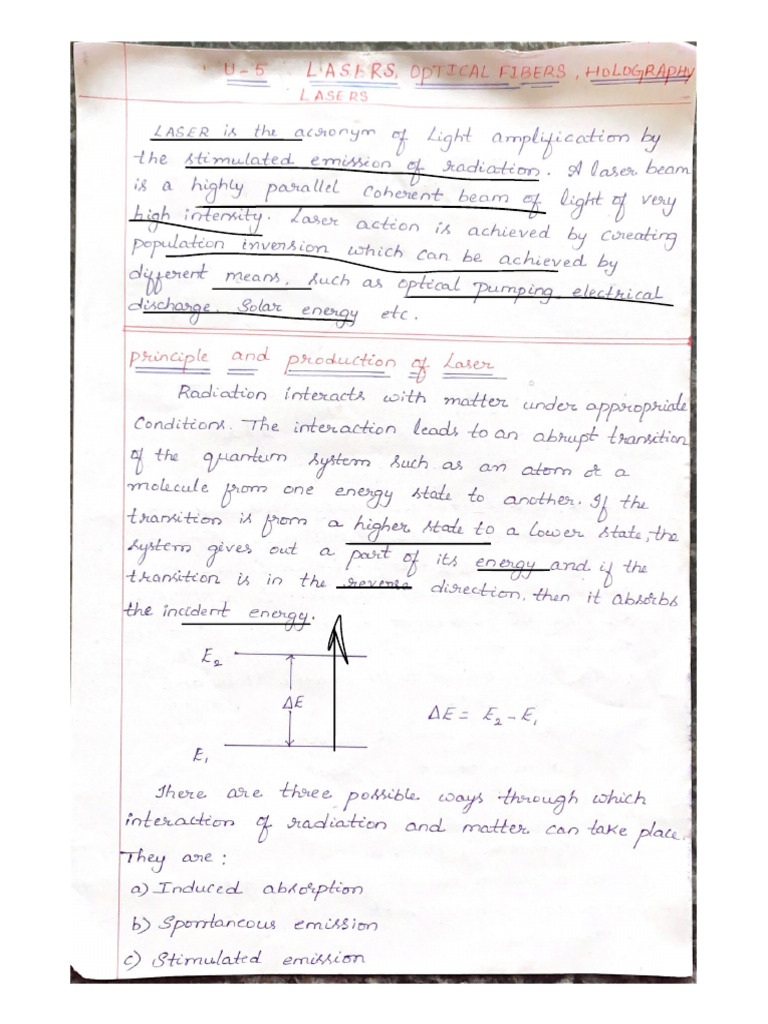 U-5 LASERS, OPTICAL FIBERS, HOLOGRAPHY
LASERS
LASER is the acronym of Light amplification by
the stimulated emission of radiation. A laser beam
is a highly parallel coherent beam of light of very
high intensity. Laser action is achieved by creating
population inversion which can be achieved by
different means, such as optical pumping, electrical
discharge, Solar energy etc.
principle and production of Laser
Radiation interacts with matter under appropriate
Conditions. The interaction leads to an abrupt transition
of the quantum system such as an atom or a
molecule from one energy state to another. If the
transition is from a higher state to a lower state, the
system gives out a part of its energy and if the
transition is in the reverse direction, then it absorbs
the incident energy.
E₂
ΔE
ΔE = E₂ - E₁
E₁
There are three possible ways through which
interaction of radiation and matter can take place.
They are:
a) Induced absorption
b) Spontaneous emission
c) Stimulated emission